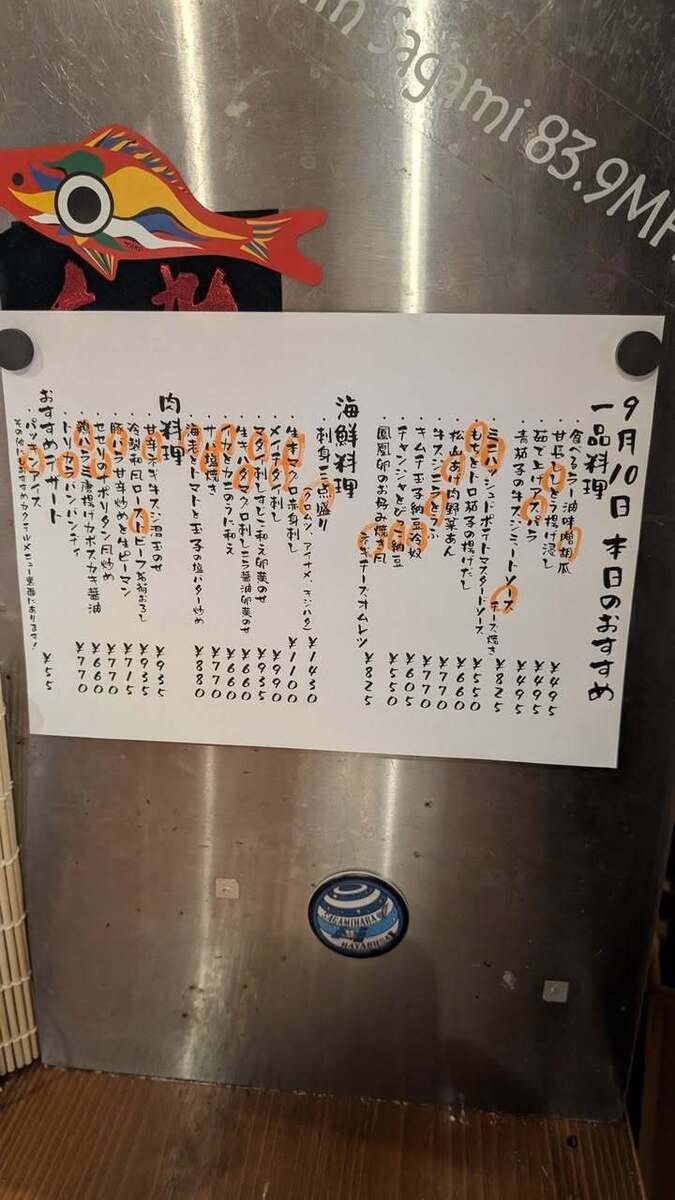 in Sagami 83.9MH
9月10日 本日のおすすめ
一品料理
・食べるラー油味噌胡瓜 ¥495
・甘長ししとう揚げ浸し ¥495
・茹で上げアスパラ ¥495
・青茄子の牛スジミートソース
チーズ焼き ¥825
・ミニハッシュドポテトマスタードソース ¥550
・もちとトロ茄子の揚げだし ¥660
・松山あげ肉野菜あん ¥770
・牛スジニラとうふ ¥770
・キムチ玉子納豆冷奴 ¥605
・チャンジャととびっこ納豆 ¥550
・鳳凰卵のお好み焼き風
ネギチーズオムレツ ¥825
海鮮料理
・刺身三点盛り ¥1430
(クロムツ、アイナメ、キジハタ)
・生本マグロ赤身刺し ¥1100
・メイチダイ刺し ¥990
・マグロ刺しすじこ和え卵黄のせ ¥935
・生キハダマグロ刺しニラ醤油卵黄のせ ¥660
・サバ塩焼き ¥770
・海老とトマトと玉子の塩バター炒め ¥880
肉料理
・甘辛ネギ牛スジ温玉のせ ¥935
・冷製和風ローストビーフ ¥935
・豚バラ甘辛炒めと生ピーマン ¥770
・せせりのナポリタン風炒め ¥660
・鶏ハラミ唐揚げカボスカキ醤油 ¥770
・トリッパパンパンティ
おすすめデザート
・パッキンアイス ¥55
その他におすすめカクテルメニュー裏面にあります!
SAGAMIHARA
HAYABUSA